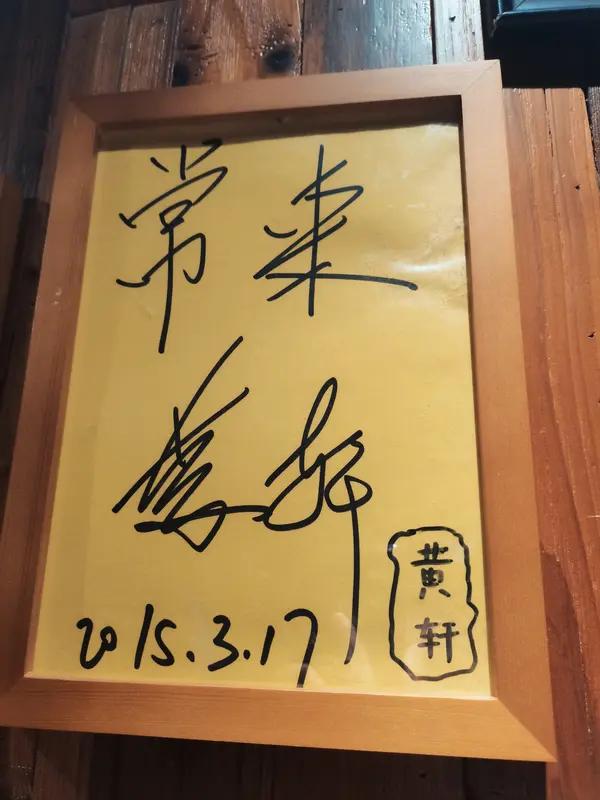 常来
黄轩
2015.3.17
黄
轩